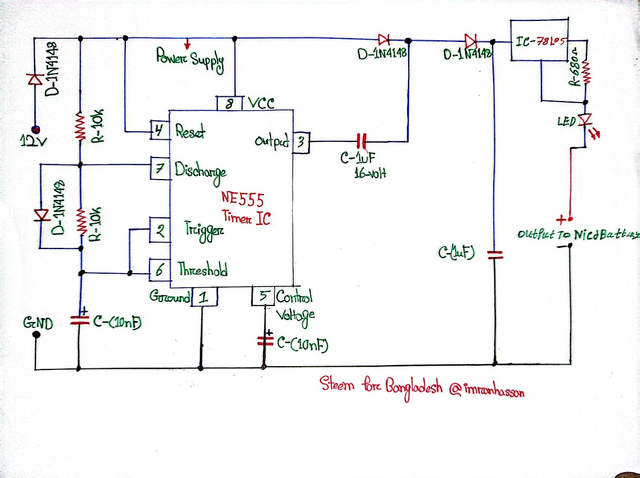 D-1N4148
Power Supply
D-1N4148
D-1N4148
IC-78L05
R-680Ω
LED
12V
R-10K
8 VCC
4 Reset
Output 3
C-1uF
16-volt
7 Discharge
NE555
Timer IC
D-1N4148
R-10K
2 Trigger
6 Threshold
Ground 1
5 Control
Voltage
+
C-(10nF)
+
C-(10nF)
GND
C-(1uF)
+
Output To Nicd Battery
-
Steem for Bangladesh @imranhassan